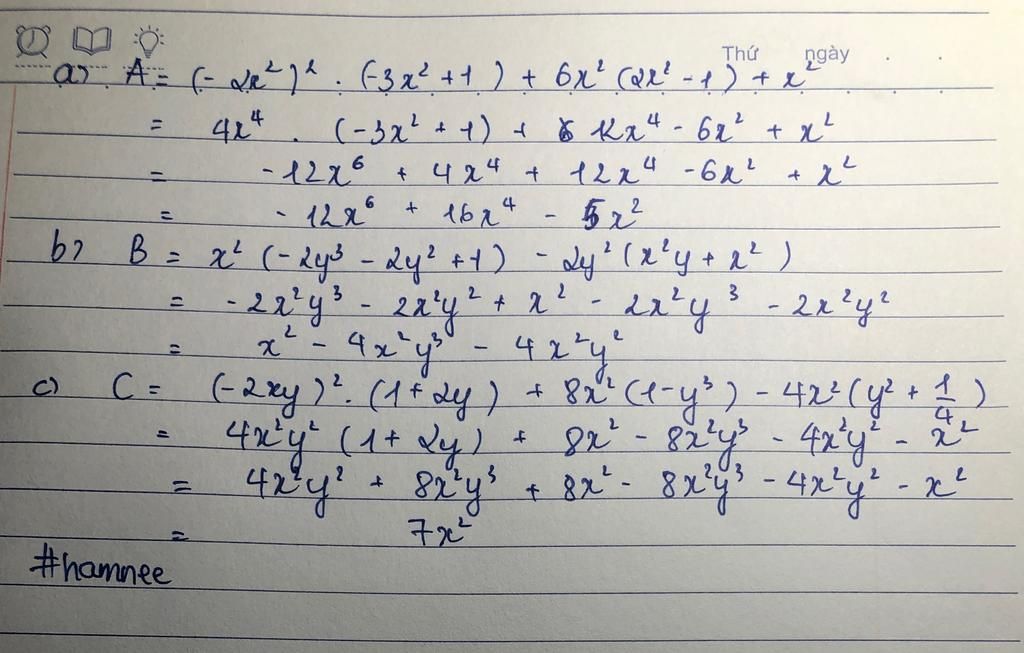 Thứ ngày
a) A = (-2x²)² . (-3x² + 1) + 6x² (2x² - 1) + x²
= 4x⁴ . (-3x² + 1) + 12x⁴ - 6x² + x²
= -12x⁶ + 4x⁴ + 12x⁴ - 6x² + x²
= -12x⁶ + 16x⁴ - 5x²
b) B = x² (-2y³ - 2y² + 1) - 2y² (x²y + x²)
= -2x²y³ - 2x²y² + x² - 2x²y³ - 2x²y²
= x² - 4x²y³ - 4x²y²
c) C = (-2xy)² . (1 + 2y) + 8x² (1 - y³) - 4x² (y² + 1/4)
= 4x²y² (1 + 2y) + 8x² - 8x²y³ - 4x²y² - x²
= 4x²y² + 8x²y³ + 8x² - 8x²y³ - 4x²y² - x²
= 7x²
#hamnee